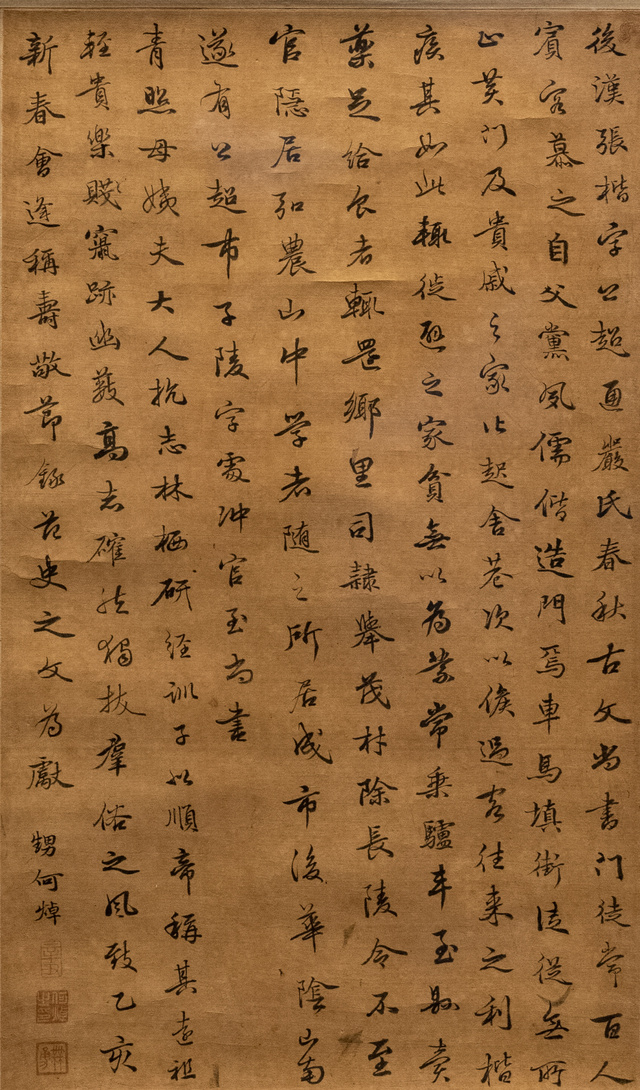 後漢張楷字公超通嚴氏春秋古文尚書門徒常百人
賓客慕之自父黨夙儒偕造門焉車馬填街徒從無所
止黃門及貴戚之家皆起舍巷次以候過客往来之利楷
疾其如此輒徙避之家貧無以為業常乘驢車至縣賣
藥足給食者輒還鄉里司隸舉茂材除長陵令不至
官隱居弘農山中學者随之所居成市後華陰山南
遂有公超市子陵字處沖官至尚書
青照母姨夫大人抗志林栖研經訓子以順帝稱其遠祖
輕貴樂賤竄跡幽藪高志確然獨拔羣俗之風致乙亥
新春會逢稱壽敬節錄范史之文為獻
甥何焯